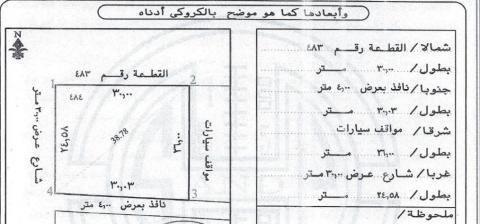 وأبعادها كما هو موضح بالكروكي أدناه
شمالا / القطعة رقم ٤٨٣
بطول / ٣٠,٠٠ متر
جنوبا / نافذ بعرض ٤,٠٠ متر
بطول / ٣٠,٠٣ متر
شرقا / مواقف سيارات
بطول / ٢٦,٠٠ متر
غربا / شارع عرض ٣٠,٠٠ متر
بطول / ٢٤,٥٨ متر
ملحوظة /
N
القطعة رقم ٤٨٣
1
2
٣٠,٠٠
٤٨٤
شارع عرض ٣٠,٠٠ متر
٢٤,٥٨
38.78
٢٦,٠٠
مواقف سيارات
٣٠,٠٣
4
3
نافذ بعرض ٤,٠٠ متر